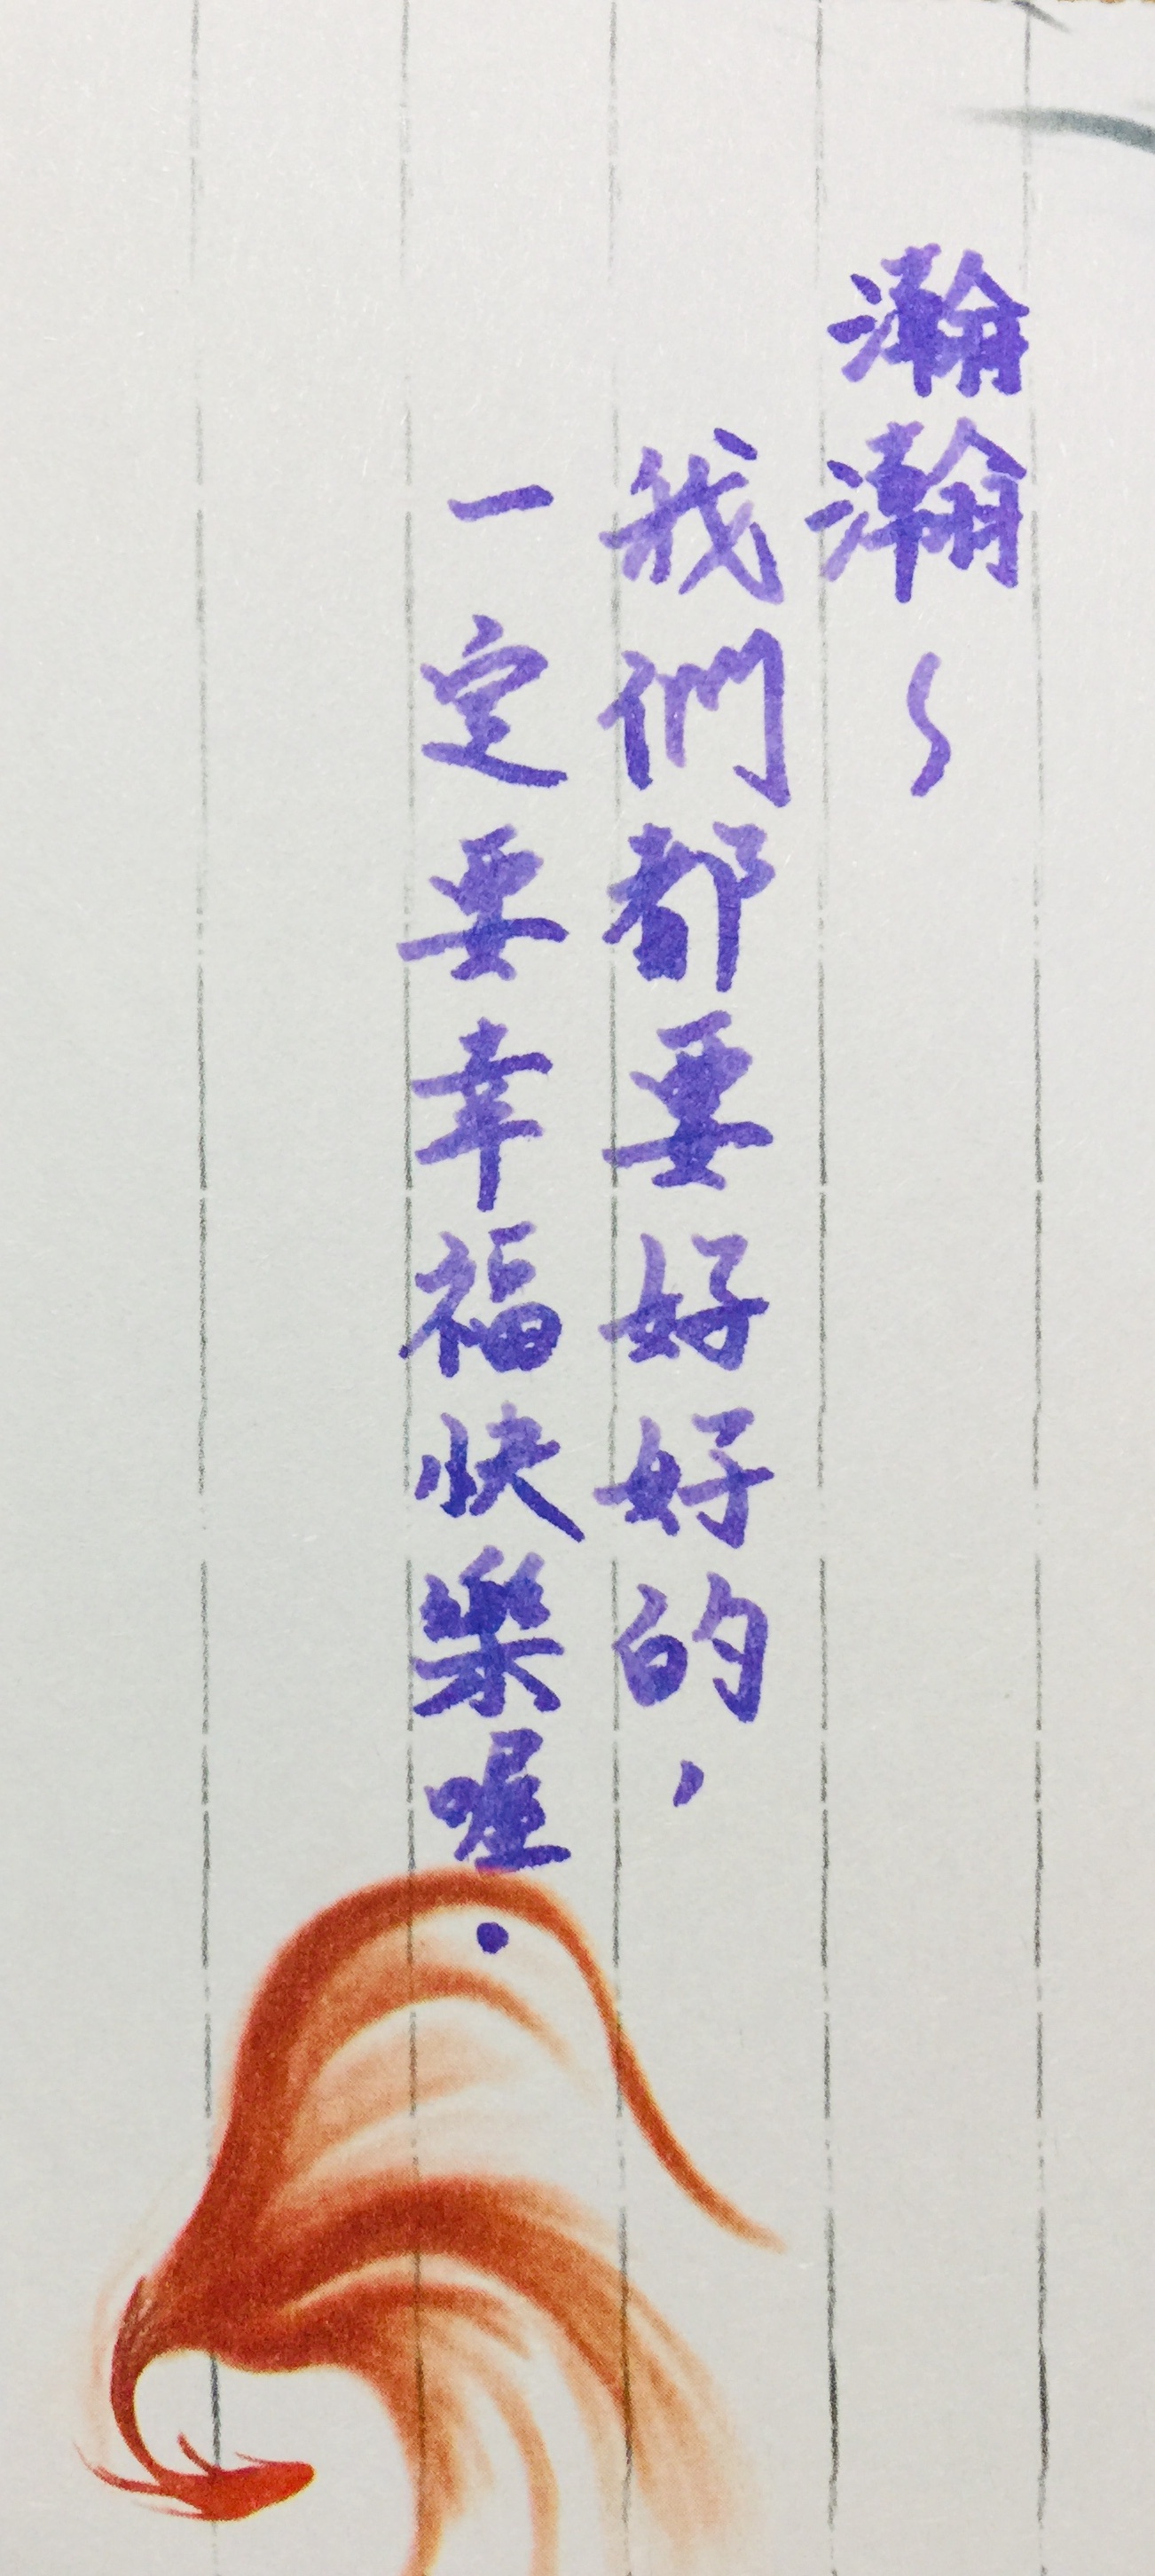 瀚瀚～
我們都要好好的，
一定要幸福快樂喔．